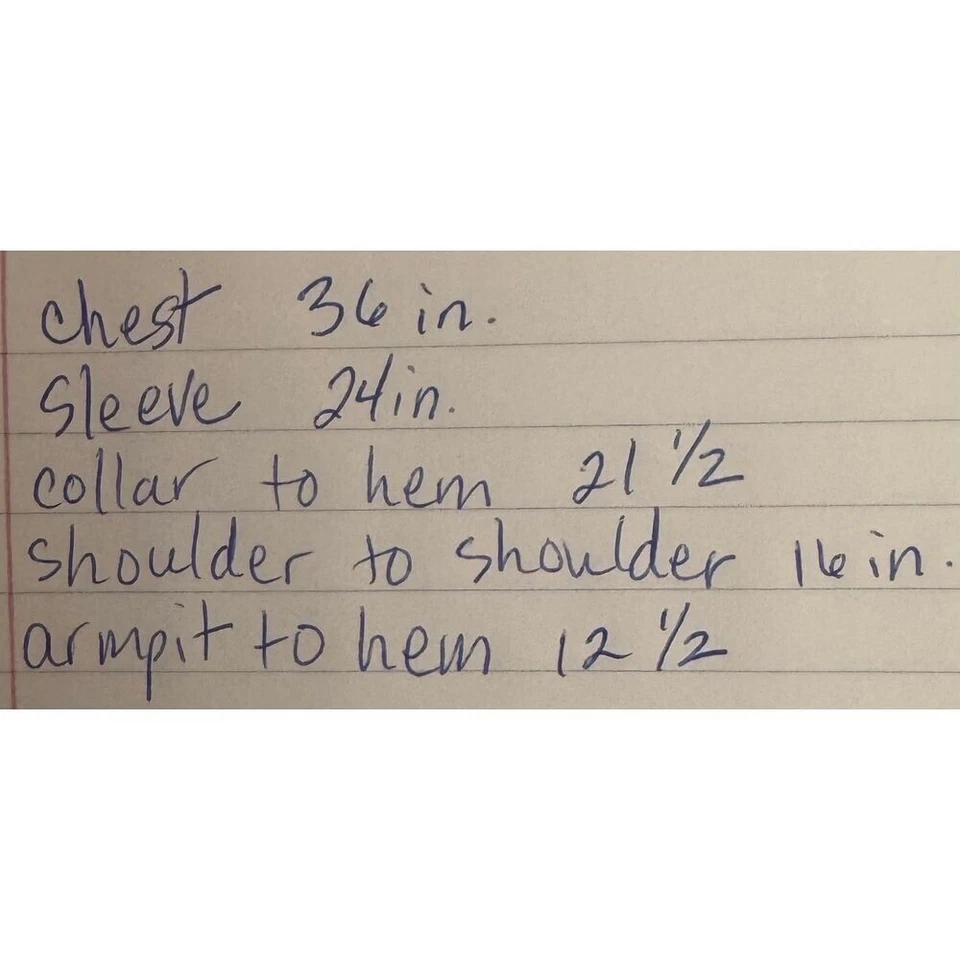 chest 36 in.
sleeve 24in.
collar to hem 21 1/2
shoulder to shoulder 16 in.
armpit to hem 12 1/2